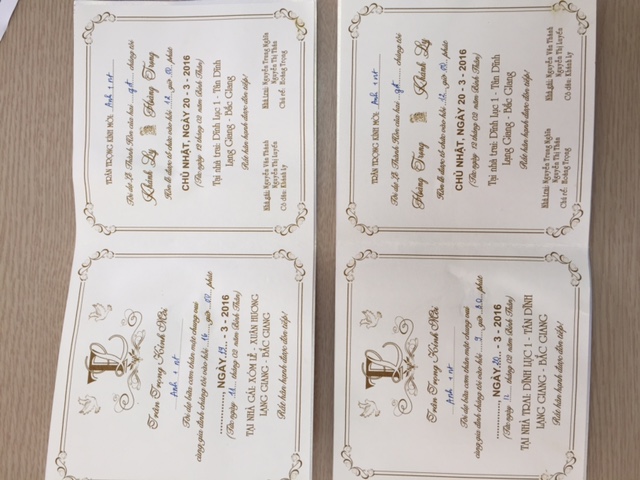 TRÂN TRỌNG KÍNH MỜI: Anh + nt
Tới dự lễ Thành Hôn của hai ... chúng tôi
Khánh Ly Hoàng Trung
Hôn lễ được tổ chức vào hồi 12 giờ 00 phút
CHỦ NHẬT, NGÀY 20 - 3 - 2016
(Tức ngày 12 tháng 02 năm Bính Thân)
Tại nhà trai: Dĩnh Lục 1 - Tân Dĩnh
Lạng Giang - Bắc Giang
Rất hân hạnh được đón tiếp!
Nhà gái: Nguyễn Văn Thành
Nguyễn Thị Luyến
Cô dâu: Khánh Ly
Nhà trai: Nguyễn Trung Nghĩa
Nguyễn Thị Huyền
Chú rể: Hoàng Trung
Trân Trọng Kính Mời
Anh + nt
Tới dự bữa cơm thân mật chung vui
cùng gia đình chúng tôi vào hồi 16 giờ 00 phút
NGÀY 19 - 3 - 2016
(Tức ngày 11 tháng 02 năm Bính Thân)
TẠI NHÀ GÁI: XÓM LẺ - XUÂN HƯƠNG
LẠNG GIANG - BẮC GIANG
Rất hân hạnh được đón tiếp!
TRÂN TRỌNG KÍNH MỜI: Anh + nt
Tới dự lễ Thành Hôn của hai ... chúng tôi
Hoàng Trung Khánh Ly
Hôn lễ được tổ chức vào hồi 12 giờ 00 phút
CHỦ NHẬT, NGÀY 20 - 3 - 2016
(Tức ngày 12 tháng 02 năm Bính Thân)
Tại nhà trai: Dĩnh Lục 1 - Tân Dĩnh
Lạng Giang - Bắc Giang
Rất hân hạnh được đón tiếp!
Nhà trai: Nguyễn Trung Nghĩa
Nguyễn Thị Huyền
Chú rể: Hoàng Trung
Nhà gái: Nguyễn Văn Thành
Nguyễn Thị Luyến
Cô dâu: Khánh Ly
Trân Trọng Kính Mời
Anh + nt
Tới dự bữa cơm thân mật chung vui
cùng gia đình chúng tôi vào hồi 9 giờ 30 phút
NGÀY 20 - 3 - 2016
(Tức ngày 12 tháng 02 năm Bính Thân)
TẠI NHÀ TRAI: DĨNH LỤC 1 - TÂN DĨNH
LẠNG GIANG - BẮC GIANG
Rất hân hạnh được đón tiếp!